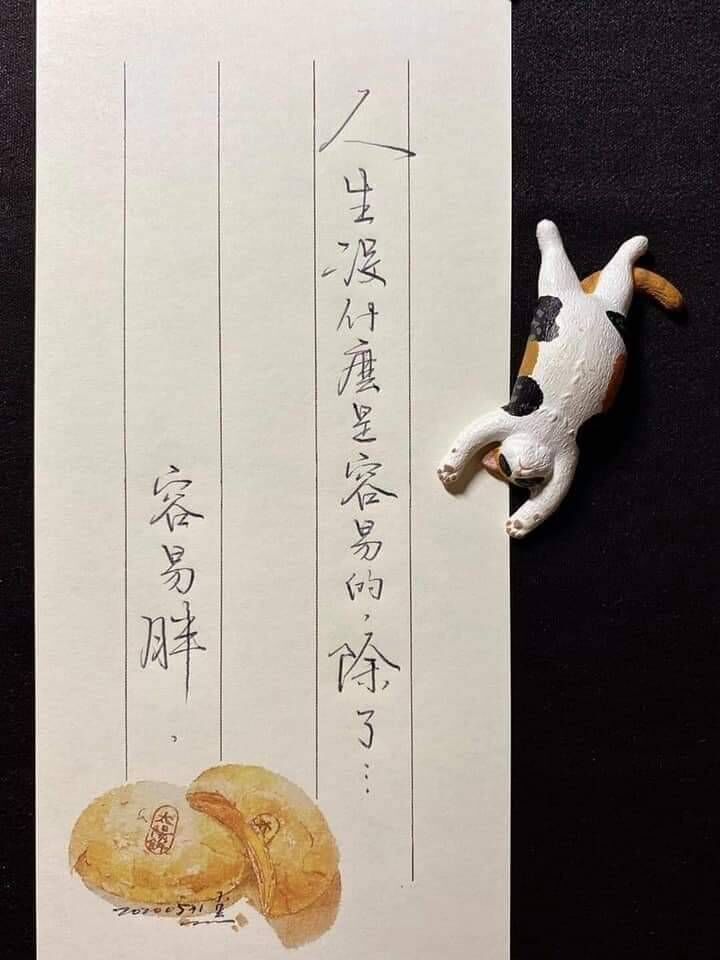 人生沒什麼是容易的，除了…
容易胖。
太陽餅
20200531